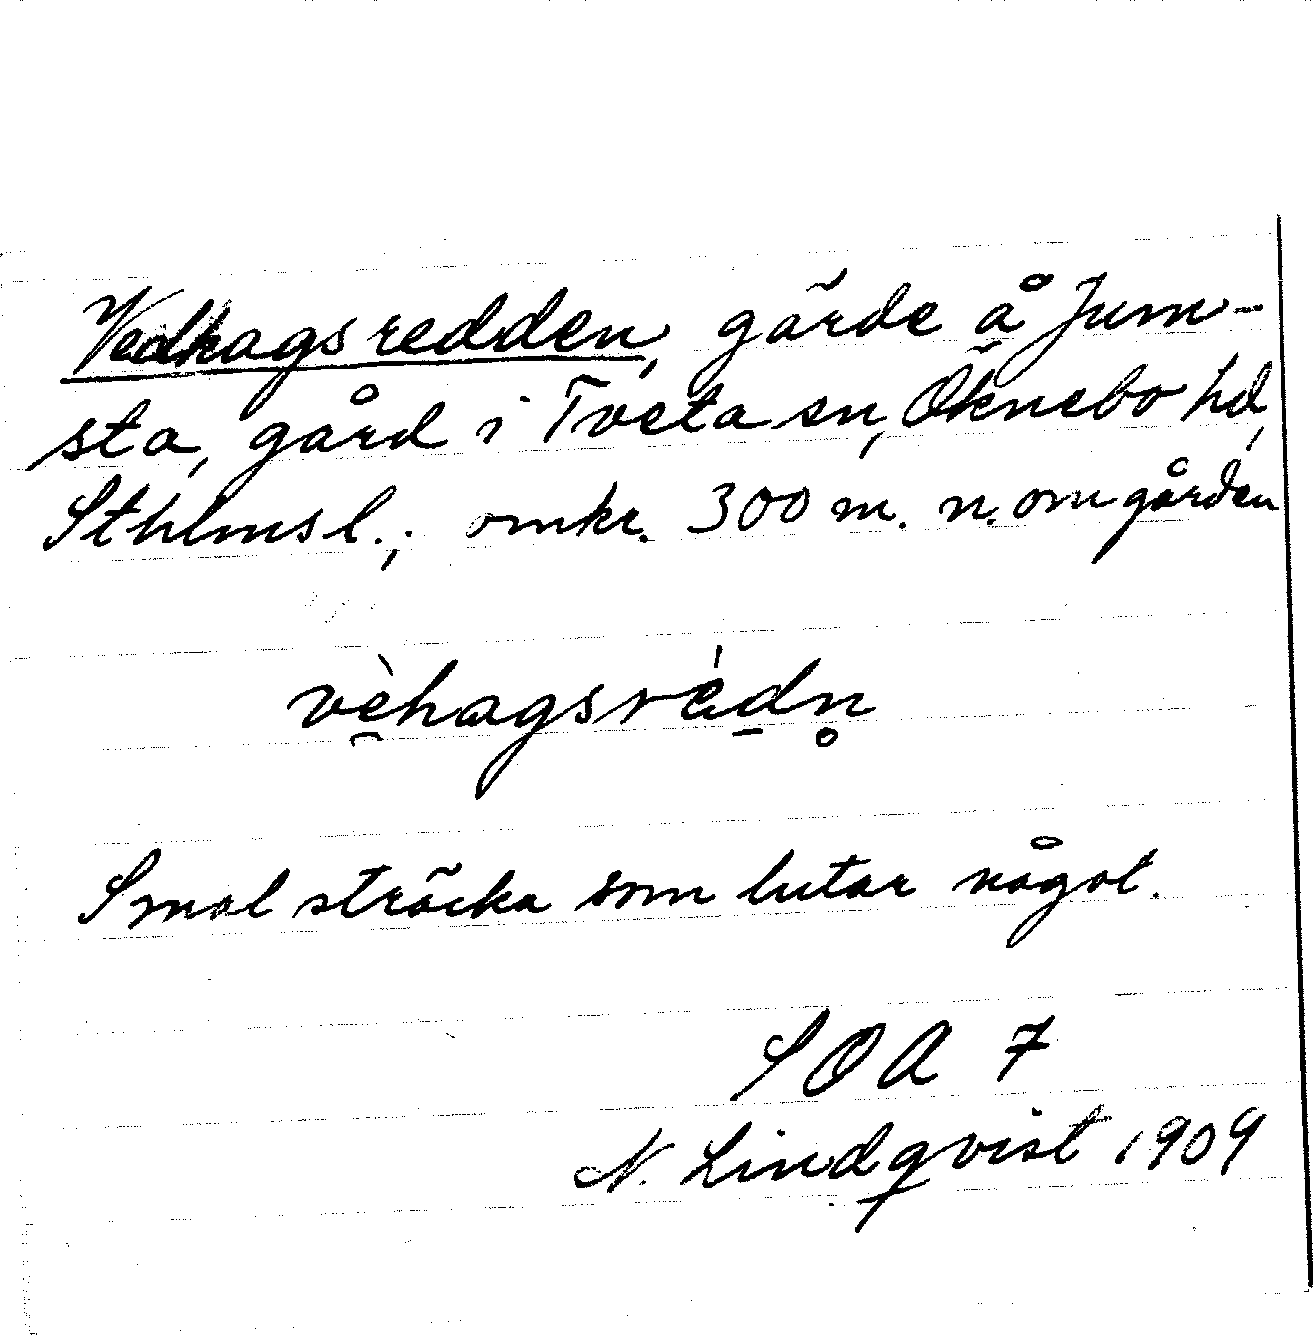 Vedhagsredden, gärde å Jum-
sta, gård i Tveta sn, Öknebo hd,
Sthlms l.; omkr. 300 m. n. om gården
vè̱hagsréd̠n̥
Smal sträcka som lutar något.
SOA 7
N. Lindqvist 1909